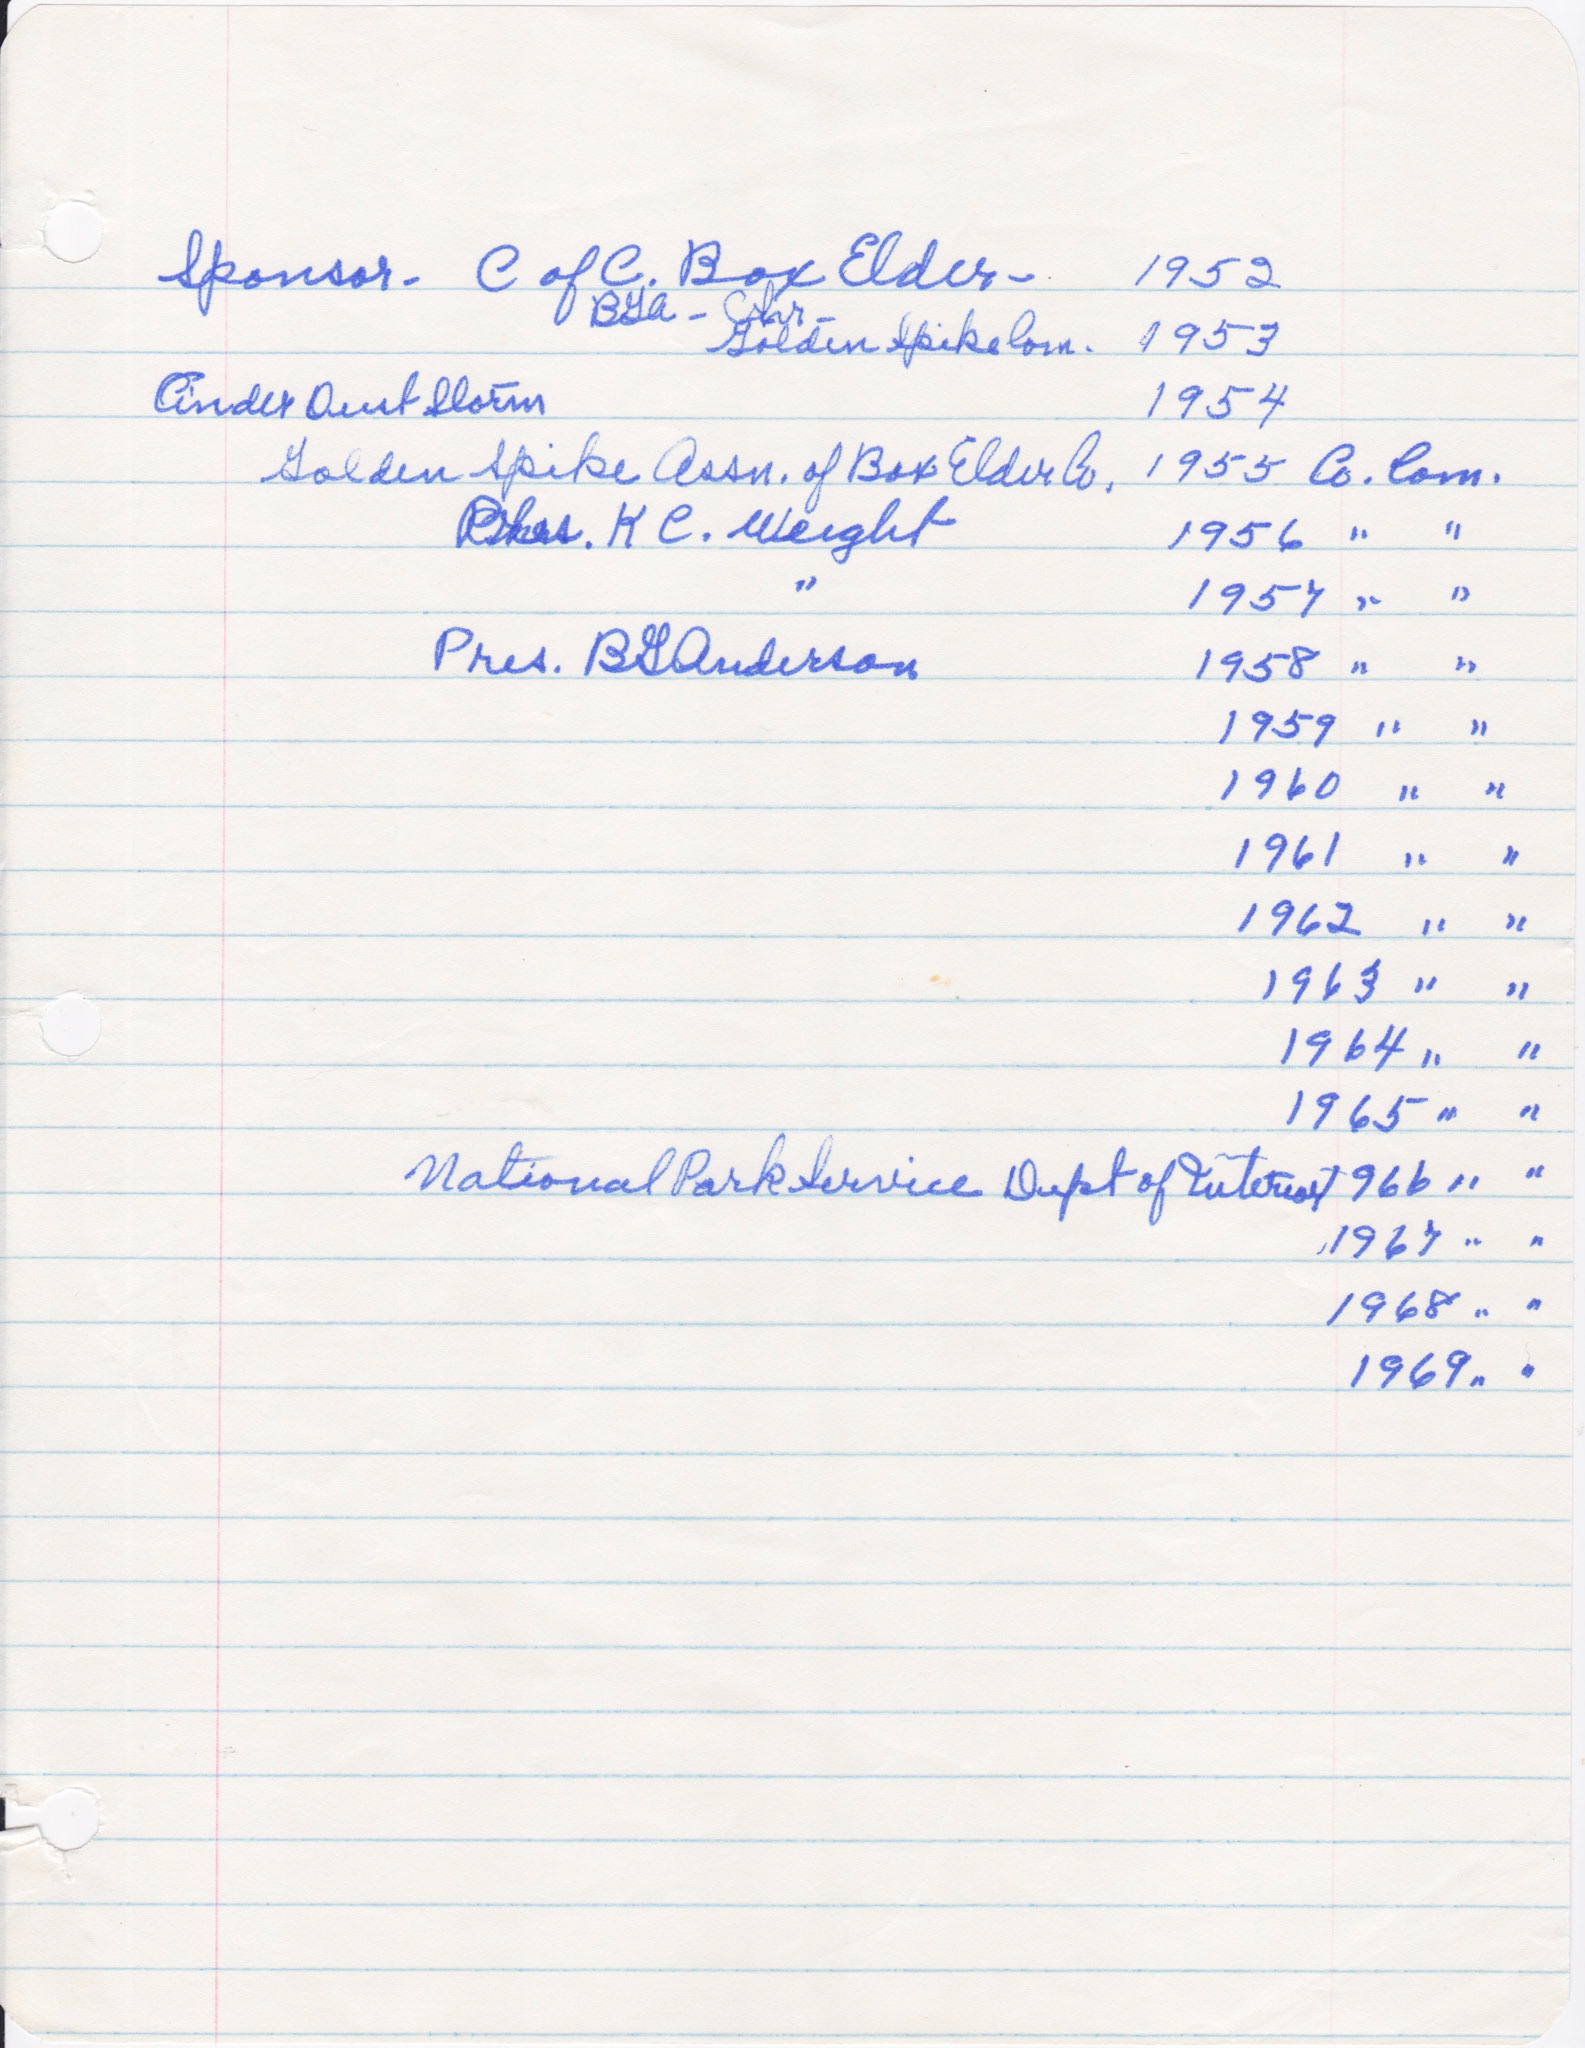 Sponsor - C of C. Box Elder - 1952
BGA - Chr -
Golden Spike Com. 1953
Cinder Dust Storm 1954
Golden Spike Assn. of Box Elder Co. 1955 Co. Com.
Pres. K C. Weight 1956 " "
" 1957 " "
Pres. BGAnderson 1958 " "
1959 " "
1960 " "
1961 " "
1962 " "
1963 " "
1964 " "
1965 " "
National Park Service Dept of Interior 1966 " "
1967 " "
1968 " "
1969 " "